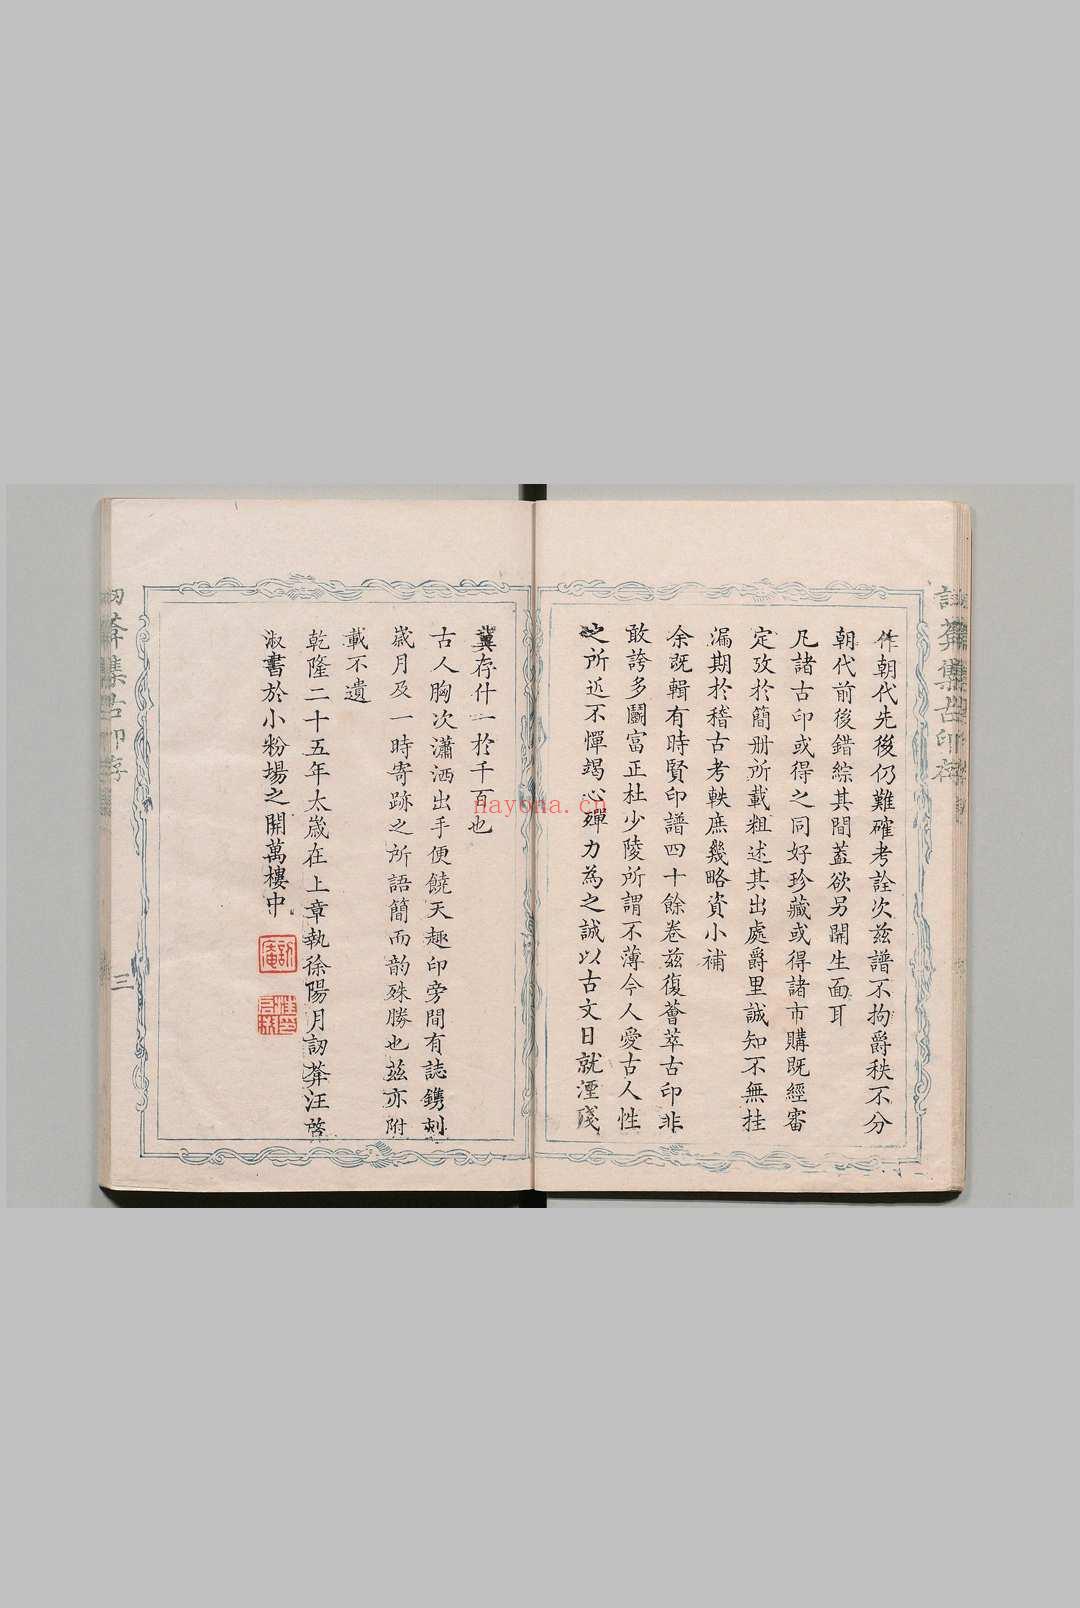 作朝代先後仍難確考詮次茲譜不拘爵秩不分
朝代前後錯綜其間蓋欲另開生面耳
凡諸古印或得之同好珍藏或得諸市購既經審
定攷於簡册所載粗述其出處爵里誠知不無挂
漏期於稽古考軼庶幾略資小補
余既輯有時賢印譜四十餘卷茲復薈萃古印非
敢誇多鬭富正杜少陵所謂不薄今人愛古人性
之所近不憚竭心殫力為之誠以古文日就湮殘
冀存什一於千百也
古人胸次瀟洒出手便饒天趣印旁間有誌鐫刻
歲月及一時寄跡之所語簡而韵殊勝也茲亦附
載不遺
乾隆二十五年太歲在上章執徐陽月訒葊汪啓
淑書於小粉場之開萬樓中
訒葊
訒葊集古印存
三
訒葊集古印存
nayona.cn